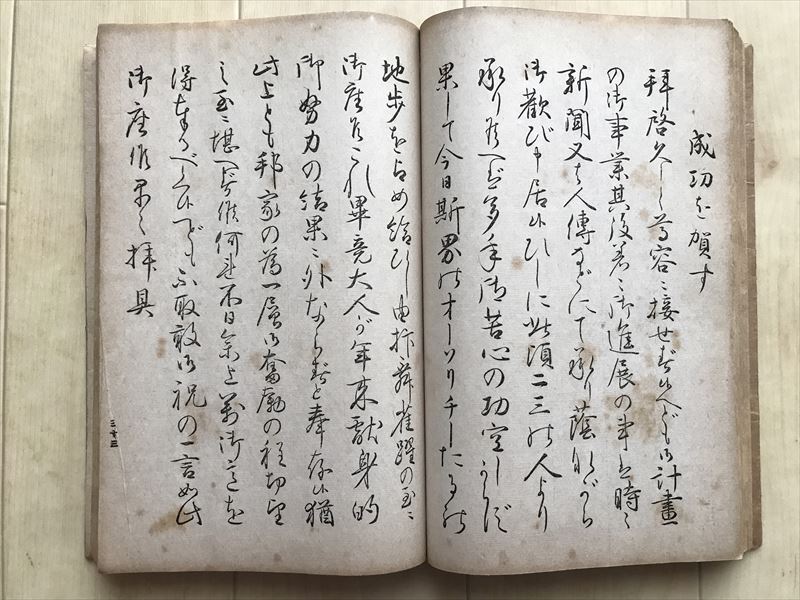 成功を賀す
拝啓久しく尊容ニ接せず候へども御計畫
の御事業其後着々御進展の事は時々
新聞又は人傳などにて承り蔭ながら
御歡び申居候ひしに此頃二三の人より
承り候へば多年御苦心の功空しからず
果して今日斯界のオーソリチーたるの
地歩を占め給ひし由抃舞雀躍の至ニ
御座候これ畢竟大人が年来献身的
御努力の結果ニ外ならずと奉存候猶
此上とも邦家の為一層御奮励の程切望
之至ニ堪へず候何れ不日参上萬御意を
得申すべく候へども不取敢御祝の一言如此
御座候草々拝具
三十三